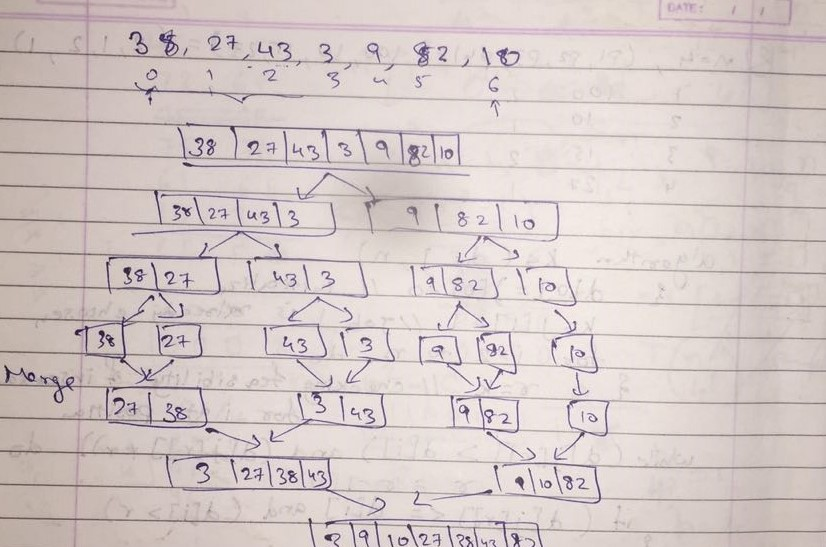 DATE: / /
38, 27, 43, 3, 9, 82, 10
0 1 2 3 4 5 6
38 27 43 3 9 82 10
38 27 43 3 9 82 10
38 27 43 3 9 82 10
38 27 43 3 9 82 10
Merge
27 38 3 43 9 82 10
3 27 38 43 9 10 82
3 9 10 27 38 43 82